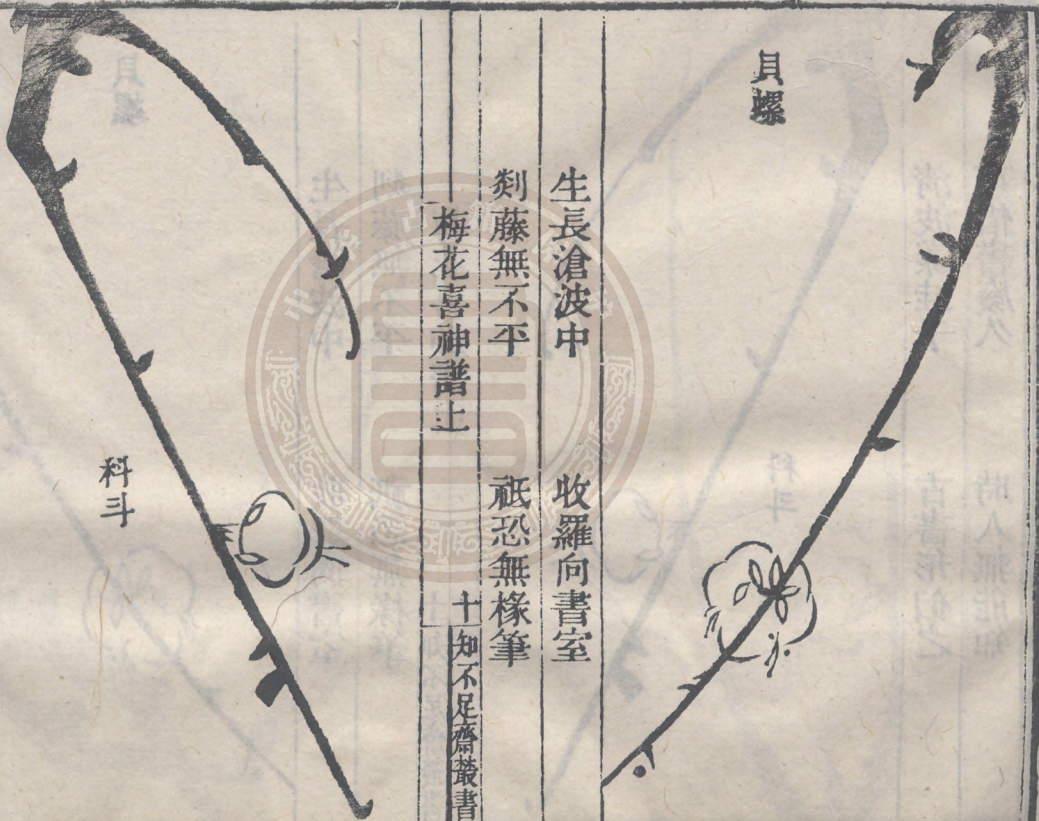 貝螺
生長滄波中
收羅向書室
剡藤無不平
祇恐無椽筆
梅花喜神譜上
十
知不足齋叢書
科斗